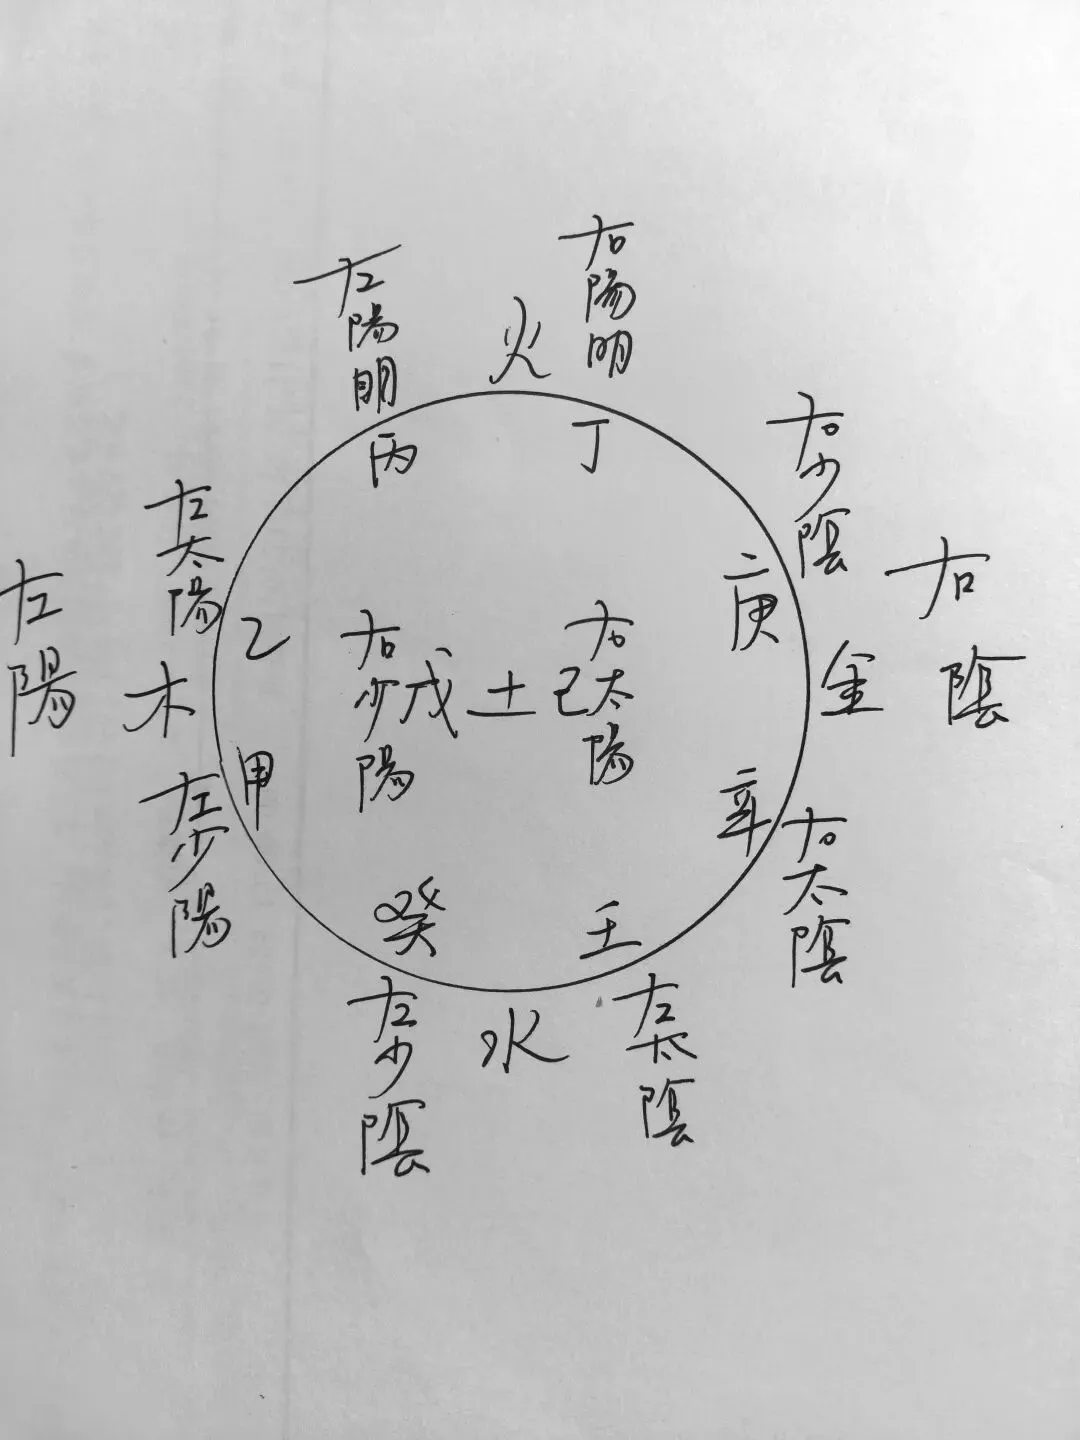 左陽明
火
右陽明
丙
丁
左太陽
右少陰
左陽
木
乙
右少陽
戊
土
己
右太陽
庚
金
右陰
甲
左少陽
辛
右太陰
癸
壬
左少陰
水
左太陰